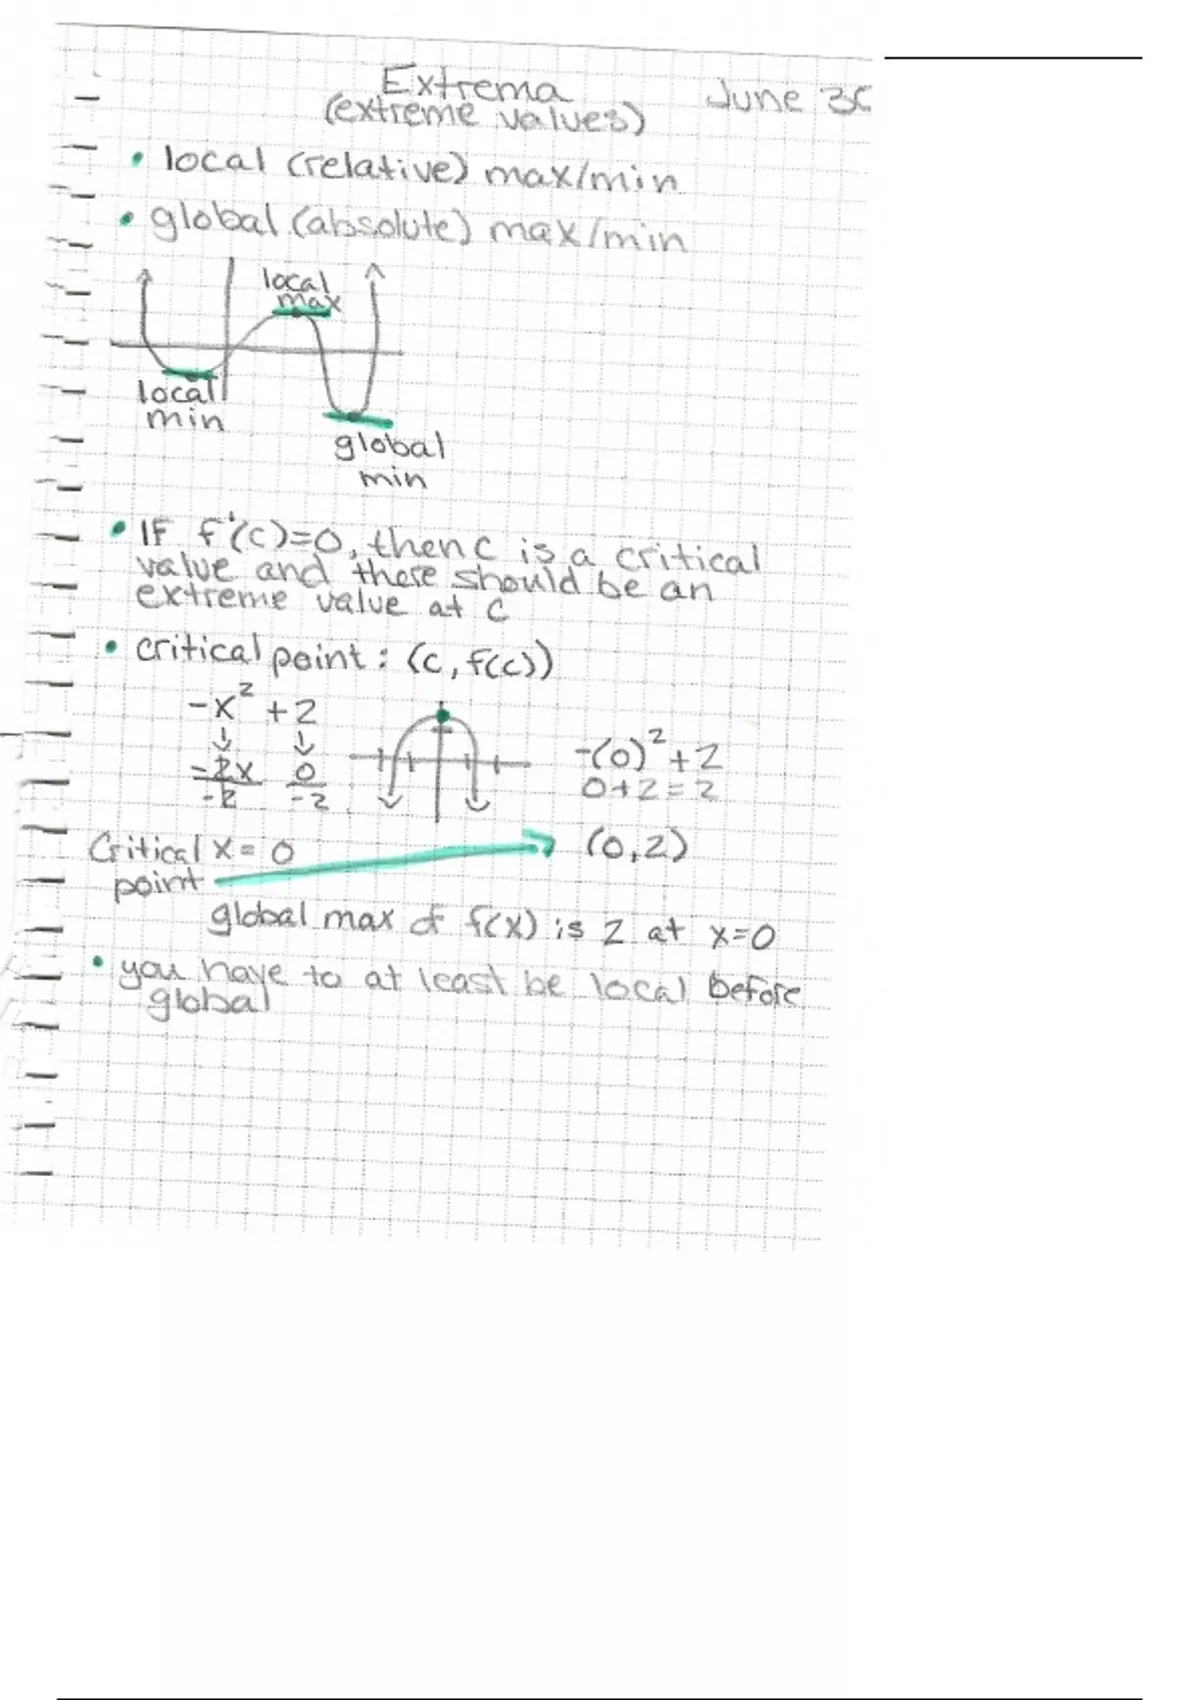 Extrema
(extreme values)
June
• local (relative) max/min
• global (absolute) max/min
local
max
local
min
global
min
• IF f'(c)=0, then c is a critical
value and there should be an
extreme value at c
• critical point: (c, f(c))
-x² + 2
↓ ↓
-2x/-2 0/-2
-(0)² + 2
0+2=2
Critical x = 0
point
(0,2)
global max of f(x) is 2 at x=0
• you have to at least be local before
global